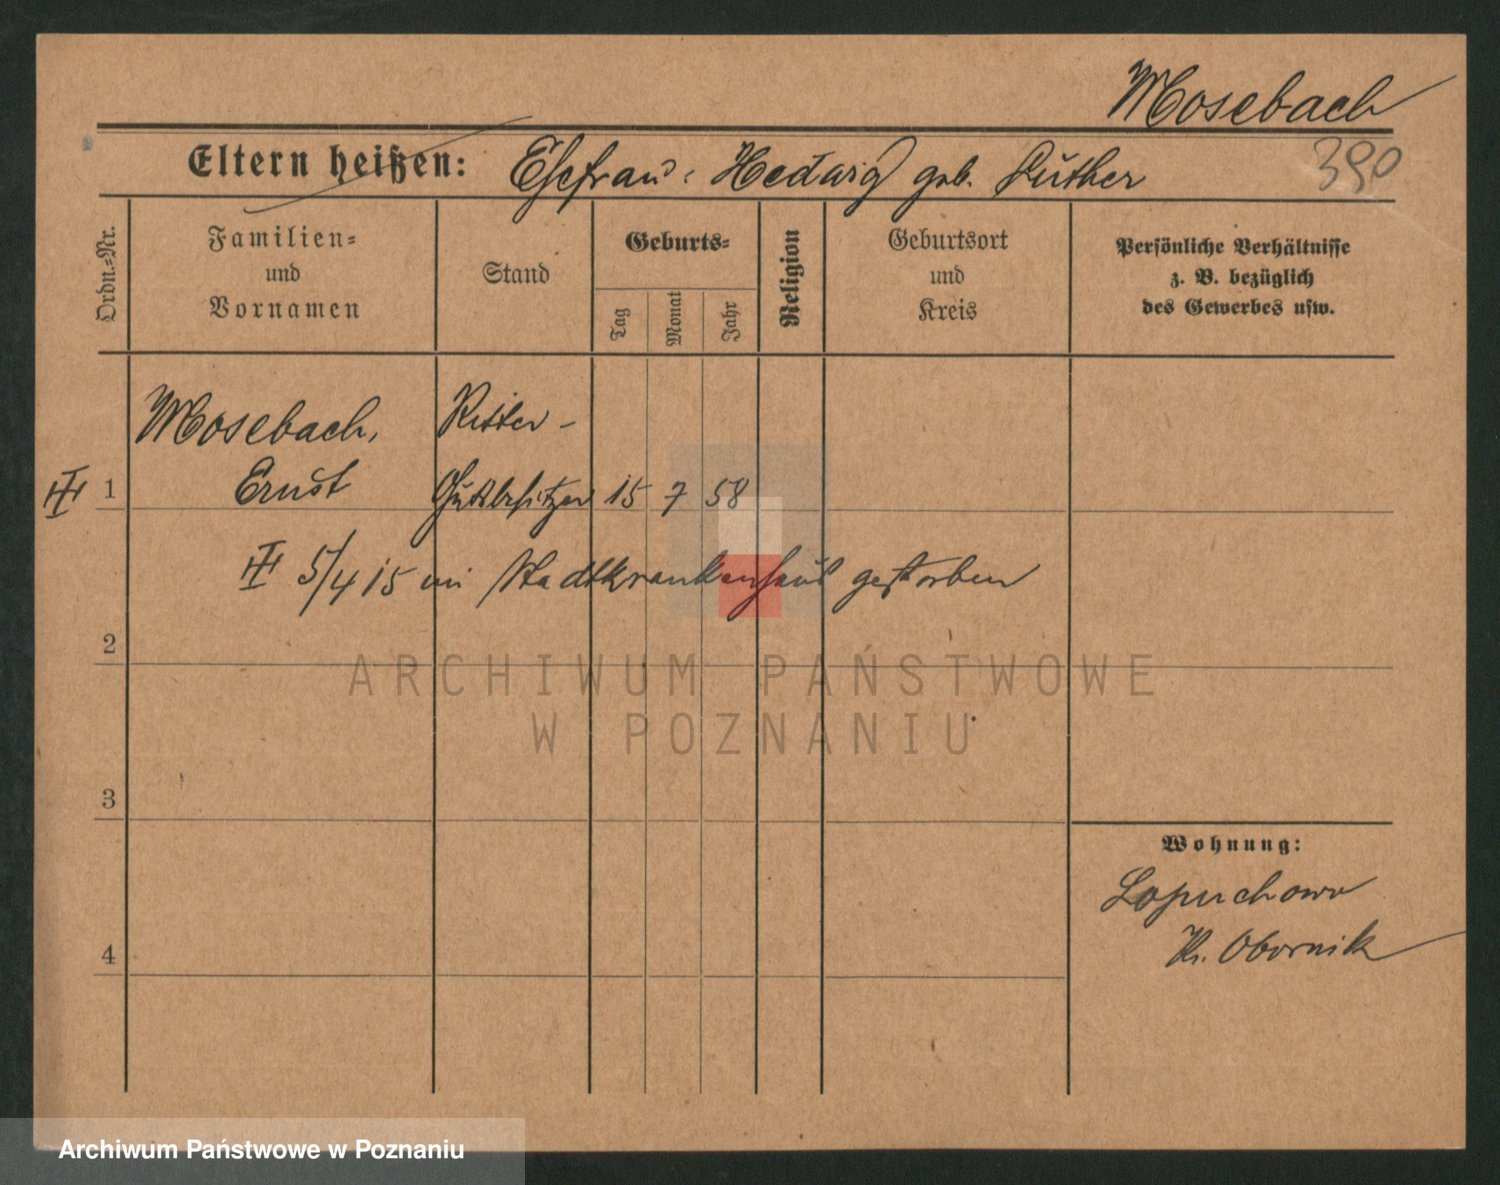 Mosebach
Eltern heißen: Ehefrau: Hedwig geb. Luther
390
Ordn.-Nr.
Familien-
und
Vornamen
Stand
Geburts-
Tag
Monat
Jahr
Religion
Geburtsort
und
Kreis
Persönliche Verhältnisse
z. B. bezüglich
des Gewerbes usw.
Mosebach, Ritter-
1 Ernst Gutsbesitzer 15 7 58
5/4 15 im Stadtkrankenhaus gestorben
2
ARCHIWUM PAŃSTWOWE
W POZNANIU
3
Wohnung:
Lopuchowo
Kr. Obornik
4
Archiwum Państwowe w Poznaniu